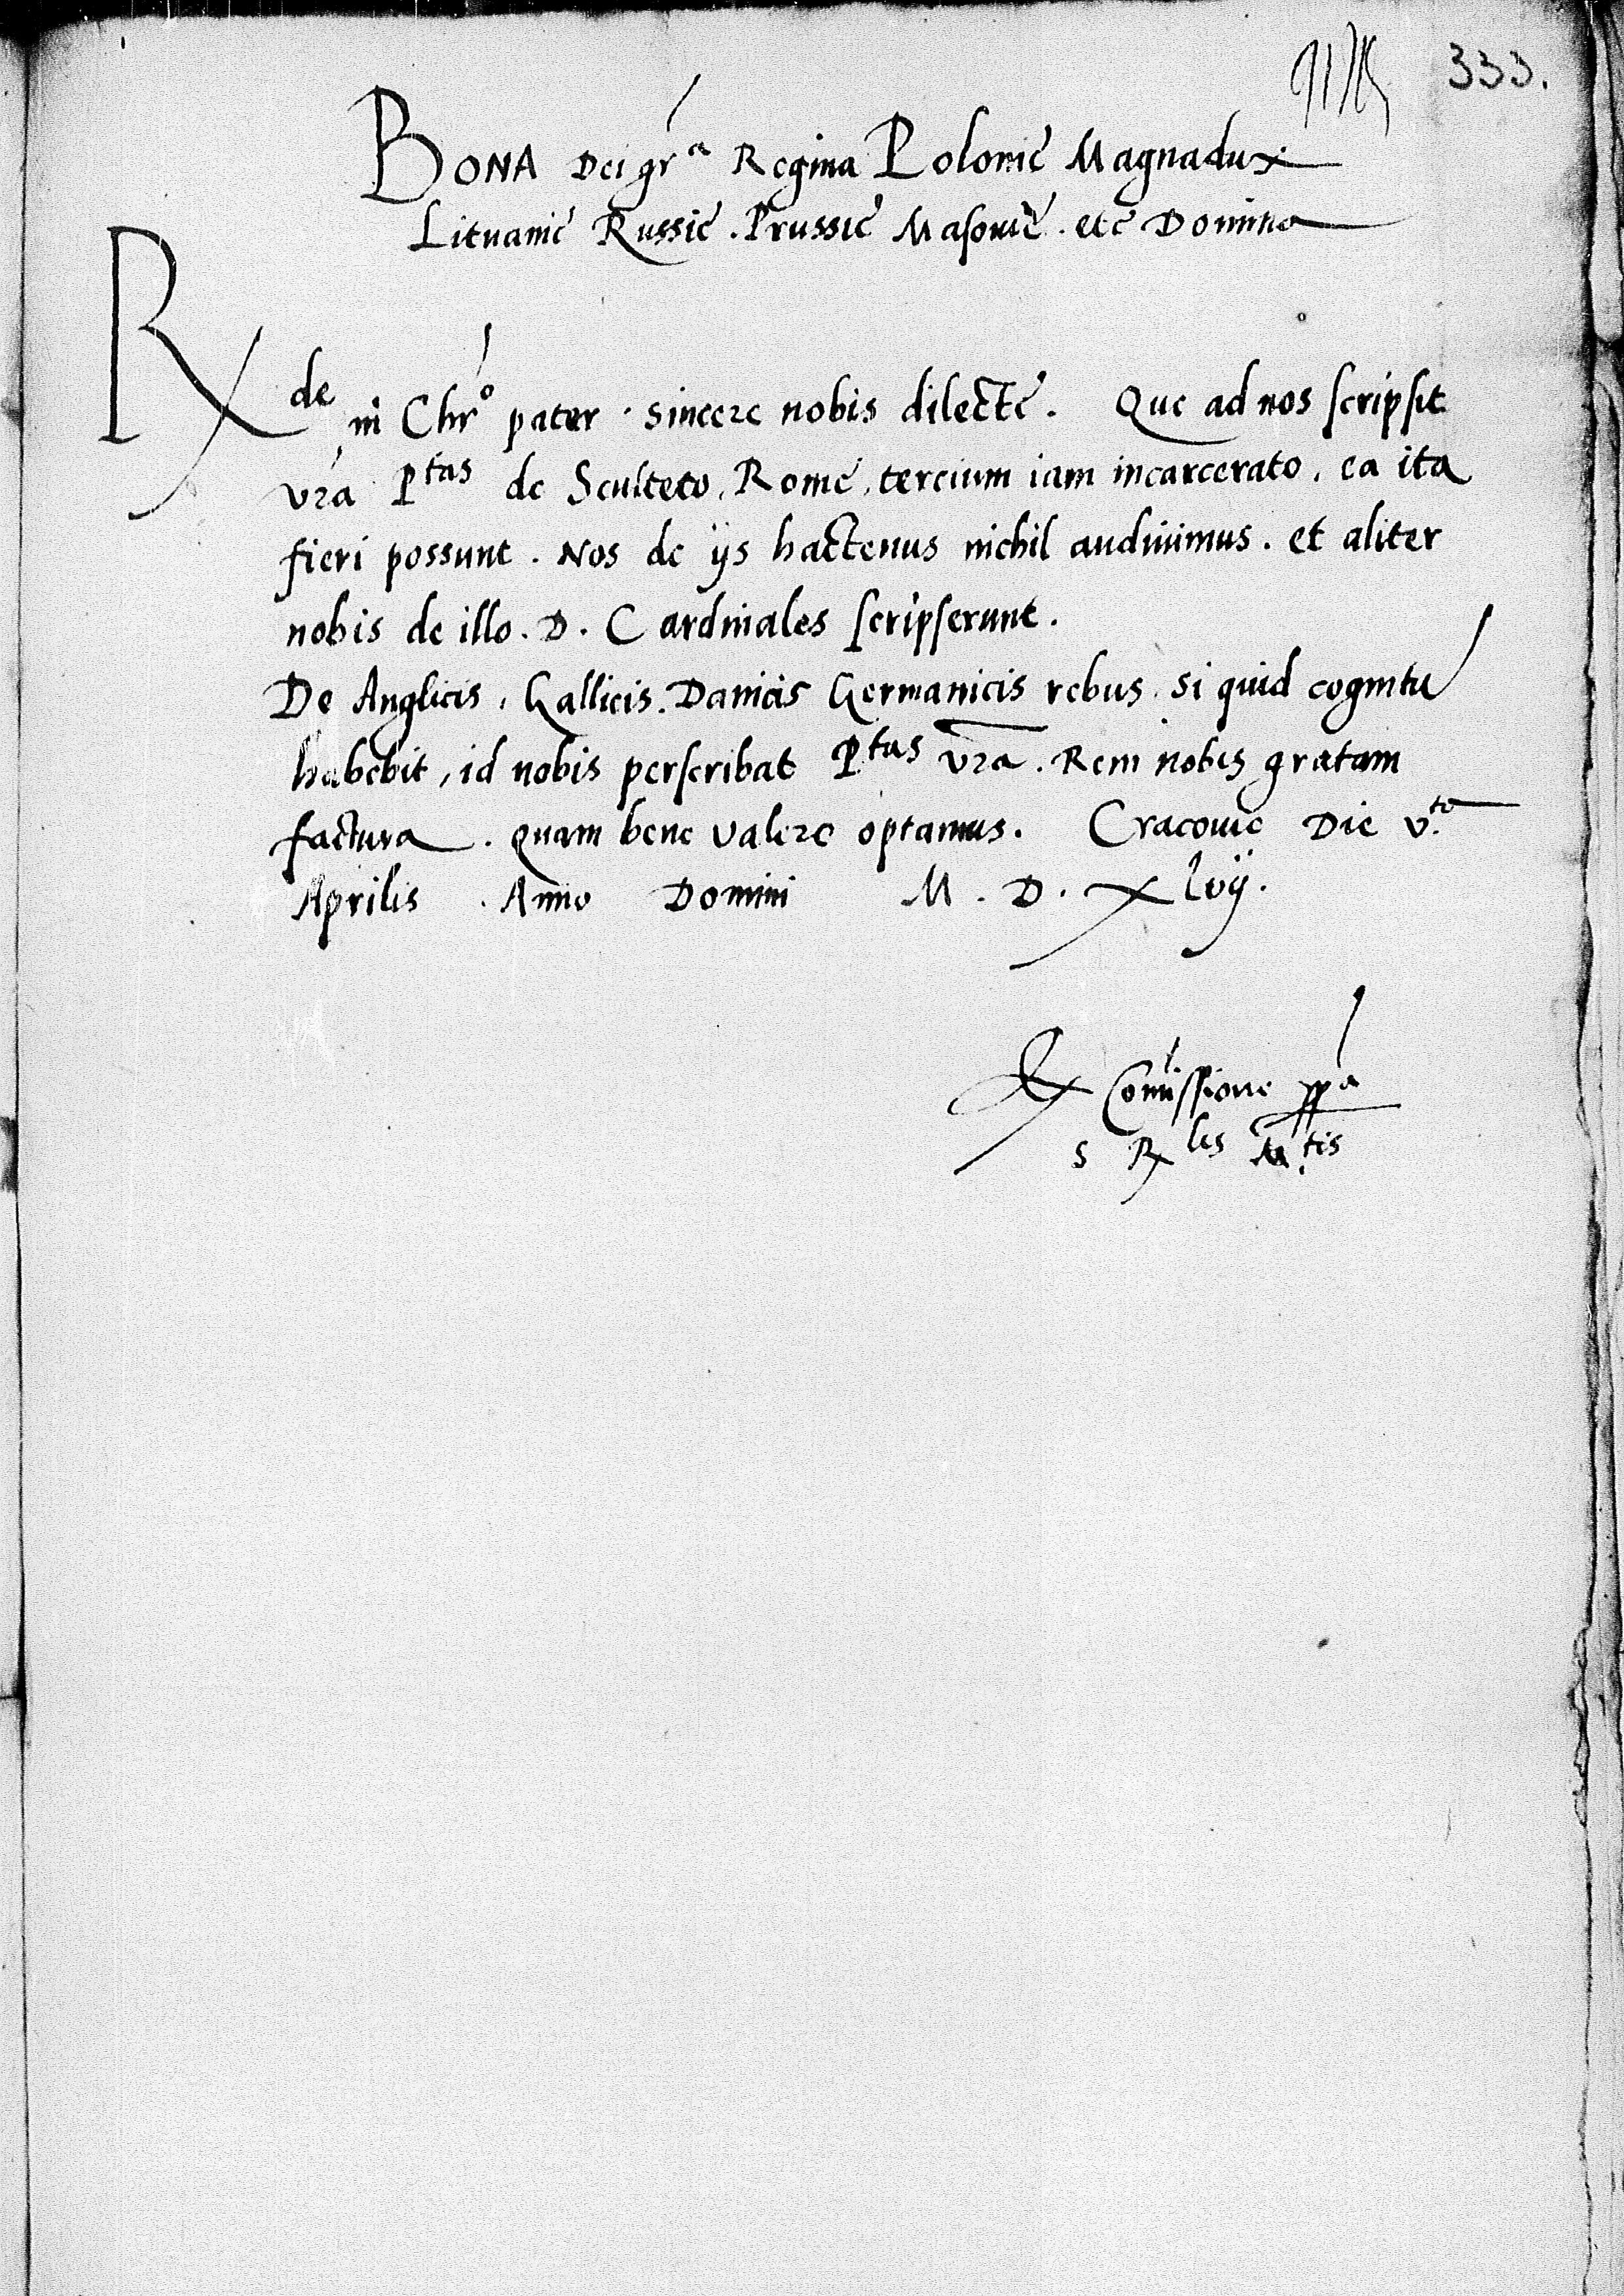 333.
BONA Dei gr̃a Regina Polonię Magnadux
Lituanię Russię . Prussię Masouię . etc̃ Domina
Rde in Chrõ pater . sincere nobis dilectę . Que ad nos scripsit
vr̃a Ptas de Sculteto, Romę, tercium iam incarcerato, ea ita
fieri possunt . Nos de ijs hactenus nichil audiuimus . et aliter
nobis de illo . D . Cardinales scripserunt .
De Anglicis, Gallicis . Danicis Germanicis rebus, si quid cognitũ
habebit, id nobis perscribat Ptas vr̃a . Rem nobis gratam
factura . quam bene valere optamus . Cracouię Die v.to
Aprilis . Anno Domini M . D . Xlvij .
Ex Com̃issione pp̃a
S Rles M.tis